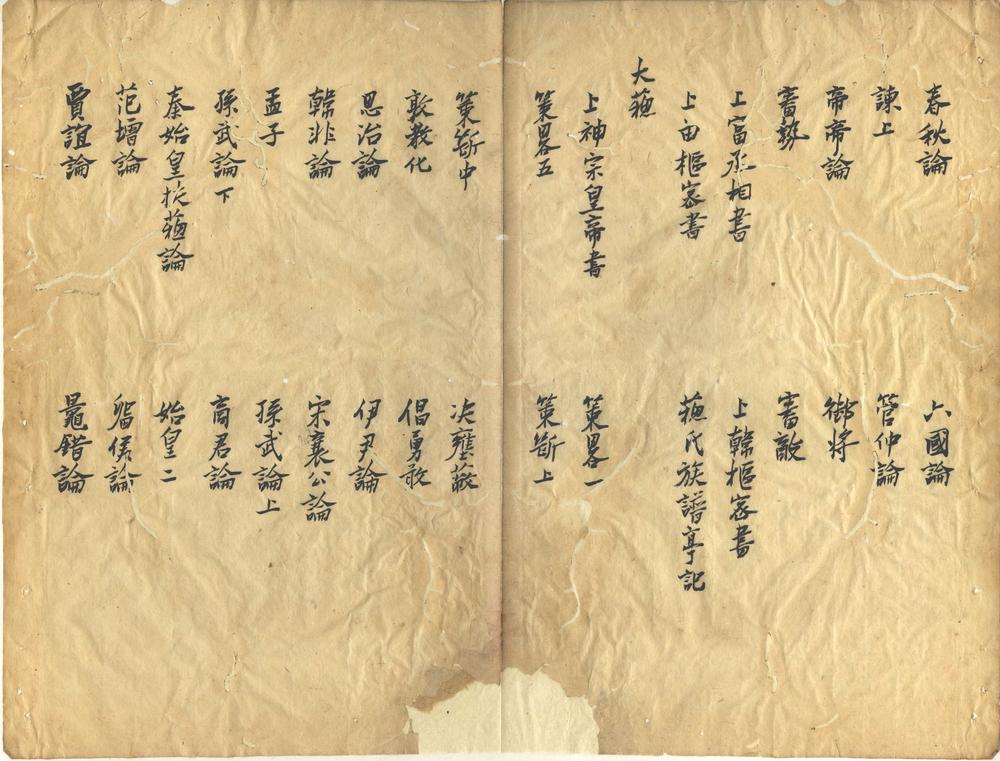 春秋論
六國論
諫上
管仲論
帝帝論
御将
審勢
審敵
上富丞相書
上韓樞宻書
上田樞宻書
蘓氏族譜亭記
大蘓
上神宗皇帝書
策畧一
策畧五
策斷上
策斷中
决壅蔽
敦教化
倡勇敢
思治論
伊尹論
韓非論
宋襄公論
孟子
孫武論上
孫武論下
商君論
秦始皇扶蘓論
始皇二
范增論
留侯論
賈誼論
鼂錯論